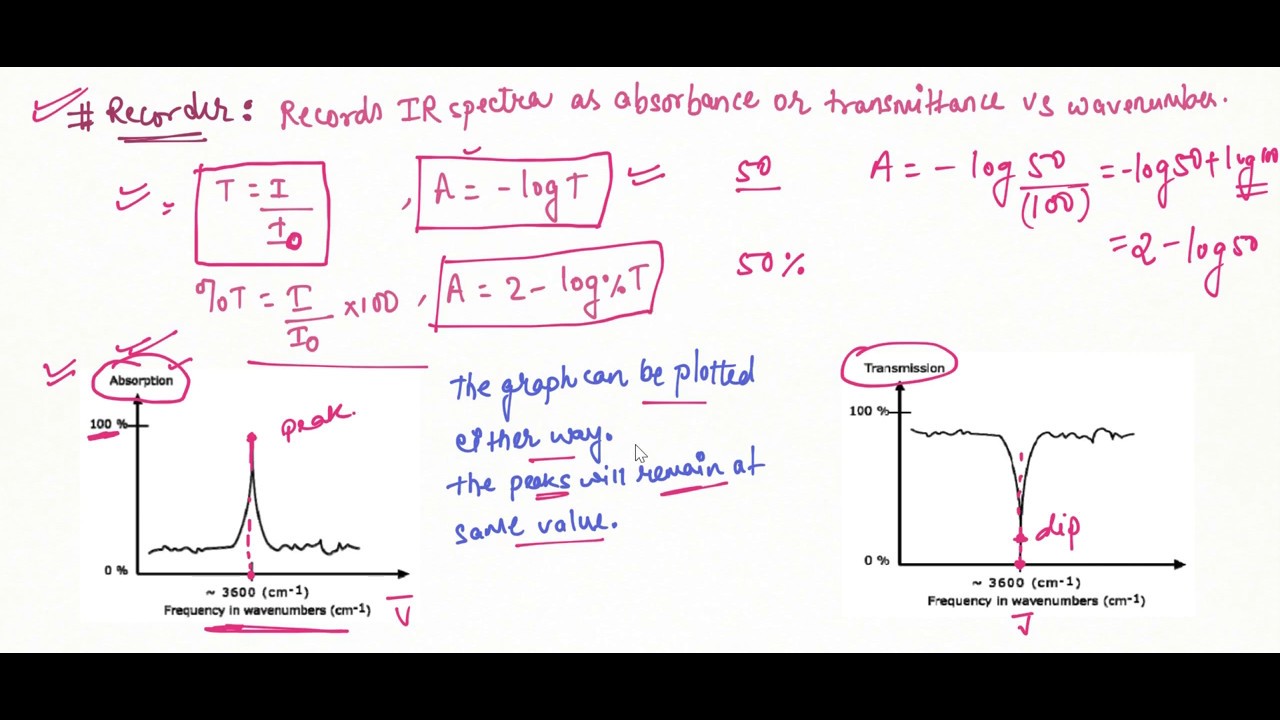 # Recorder: Records IR spectra as absorbance or transmittance vs wavenumber.
T = I/I0 , A = -log T
50
A = -log 50/(100) = -log50 + log100
= 2 - log50
%T = I/I0 ×100 , A = 2 - log%T
50%
Absorption
100 %
peak.
0 %
~ 3600 (cm-1)
Frequency in wavenumbers (cm-1)
ν̅
the graph can be plotted
either way.
the peaks will remain at
same value.
Transmission
100 %
dip
0 %
~ 3600 (cm-1)
Frequency in wavenumbers (cm-1)
ν̅